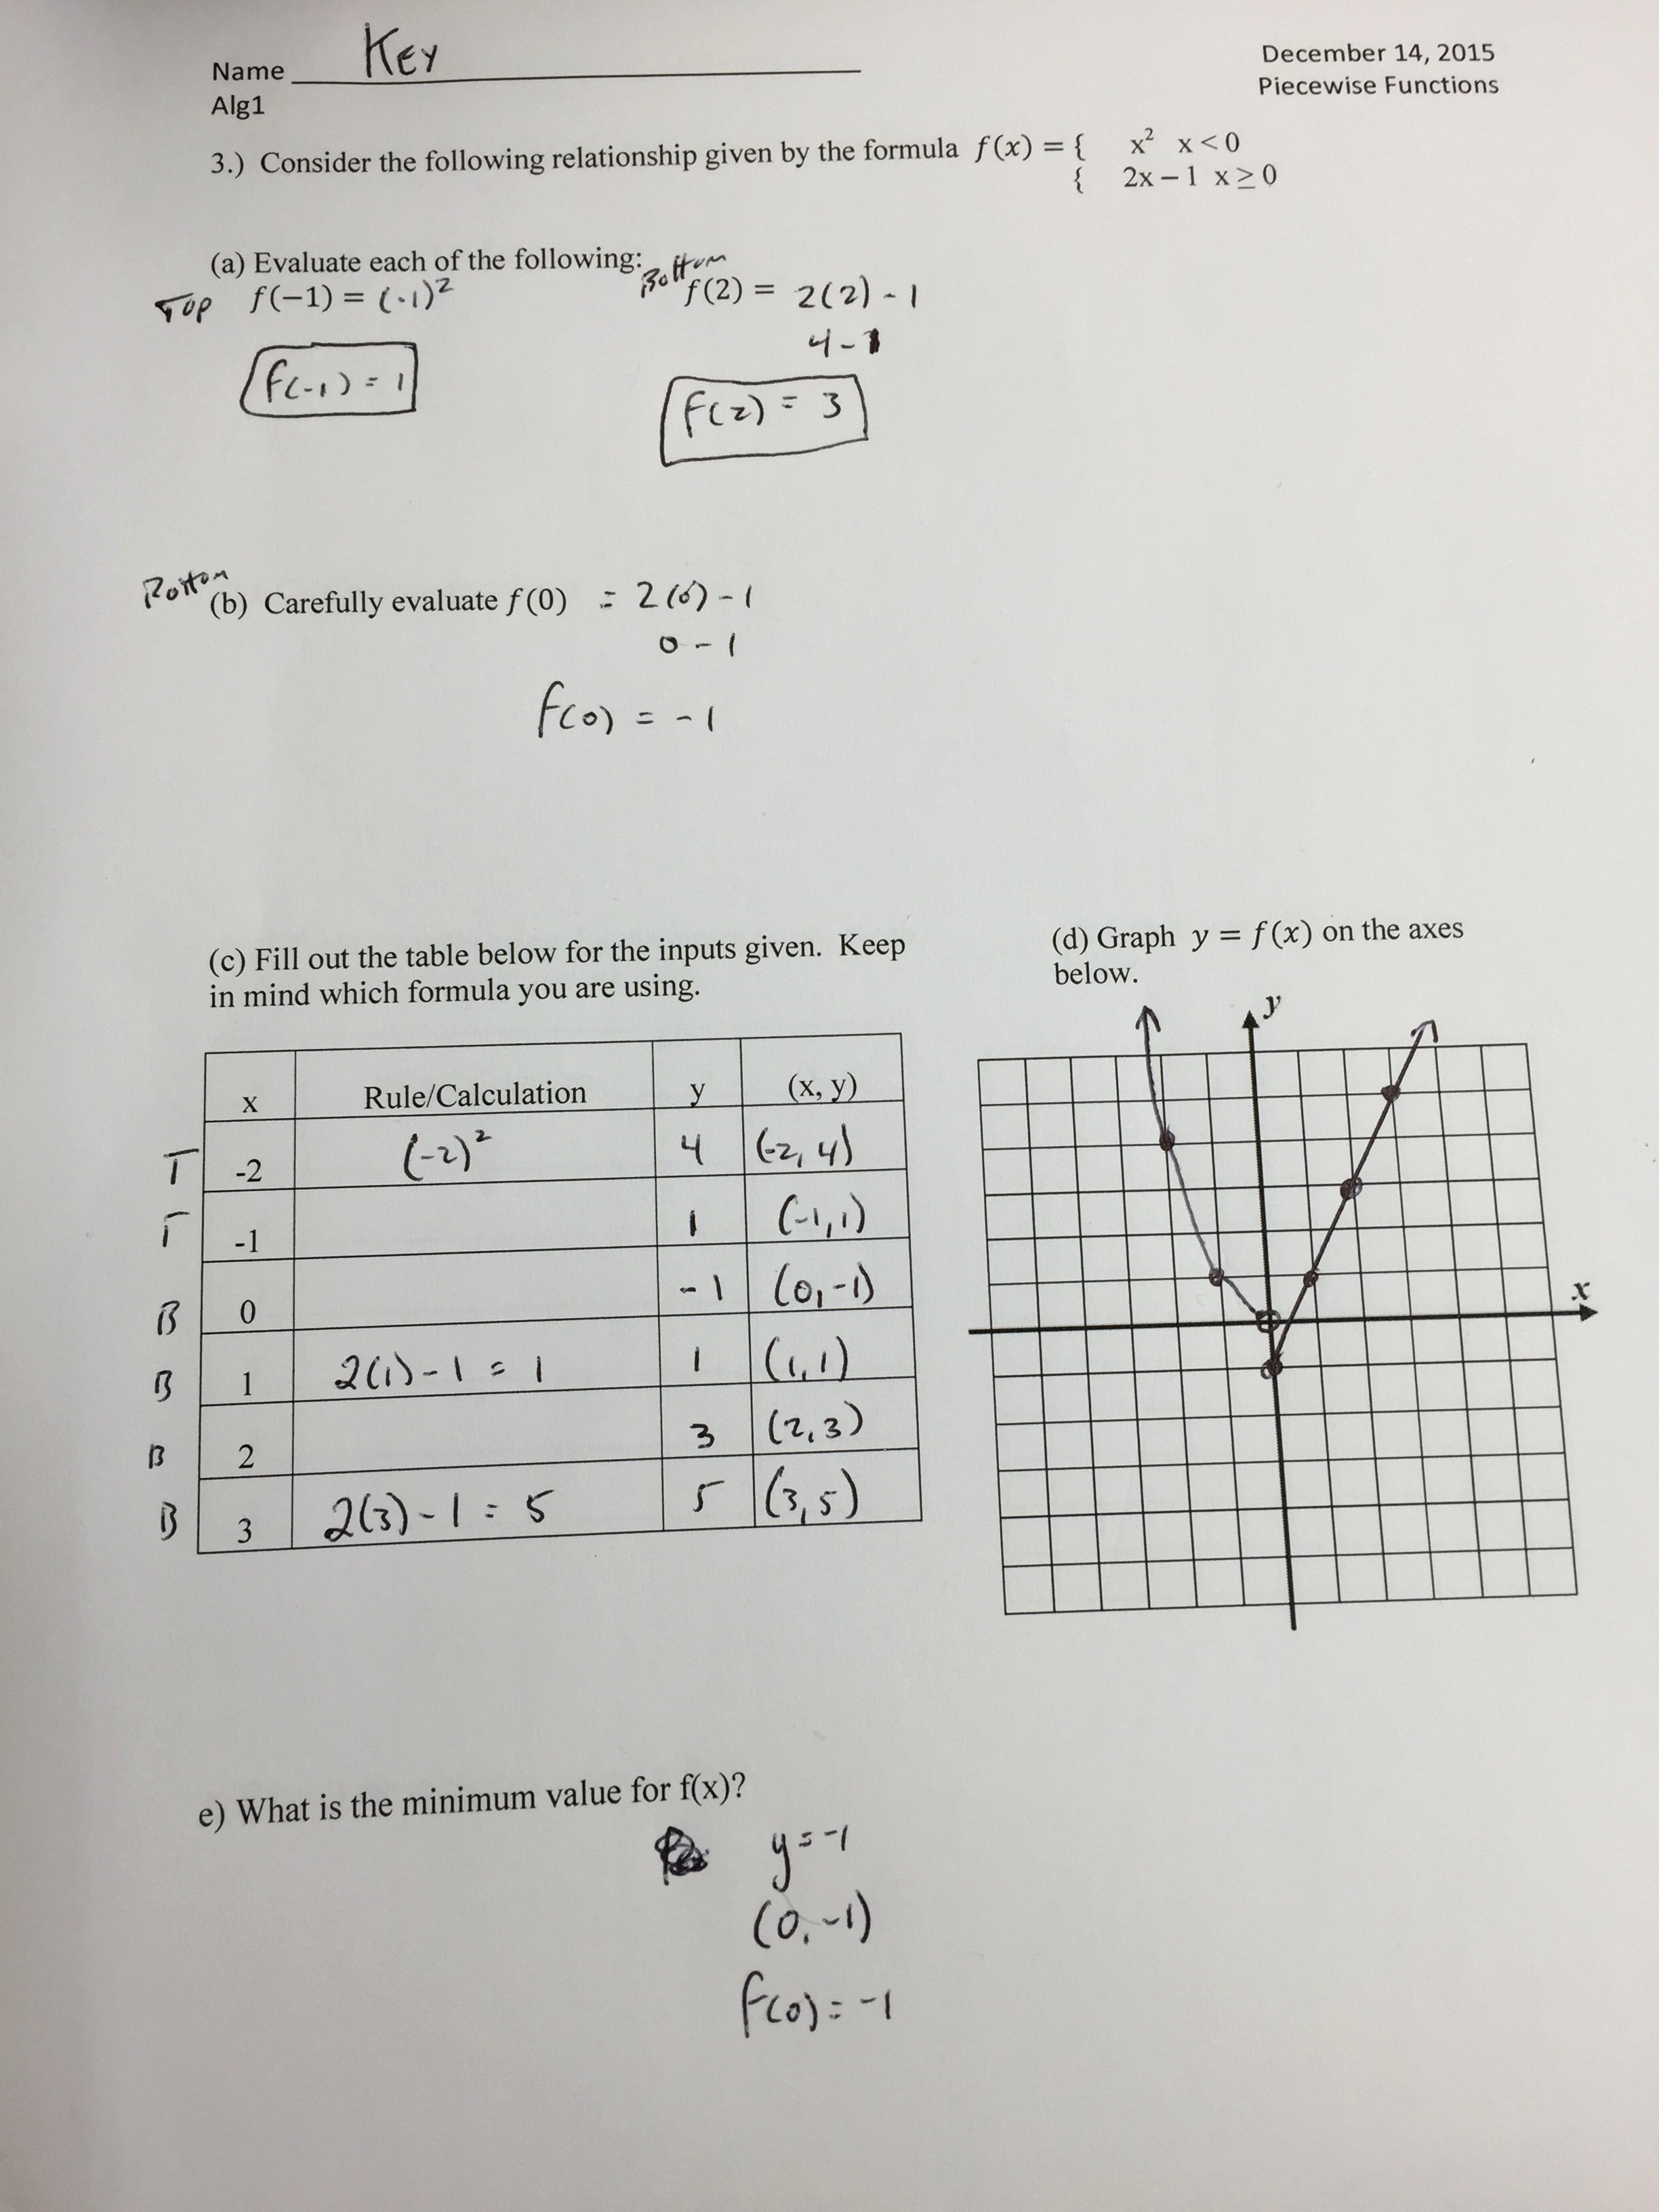 Name KEY
December 14, 2015
Alg1
Piecewise Functions
3.) Consider the following relationship given by the formula f(x) = { x² x < 0
{ 2x – 1 x ≥ 0
(a) Evaluate each of the following:
Top f(−1) = (-1)²
Bottom f(2) = 2(2) - 1
4 - 1
f(-1) = 1
f(2) = 3
Bottom
(b) Carefully evaluate f(0) = 2(0) - 1
0 - 1
f(0) = -1
(c) Fill out the table below for the inputs given. Keep
in mind which formula you are using.
x Rule/Calculation y (x, y)
T -2 (-2)² 4 (-2, 4)
T -1 1 (-1, 1)
B 0 -1 (0, -1)
B 1 2(1) - 1 = 1 1 (1, 1)
B 2 3 (2, 3)
B 3 2(3) - 1 = 5 5 (3, 5)
(d) Graph y = f(x) on the axes
below.
y
x
e) What is the minimum value for f(x)?
y = -1
(0, -1)
f(0) = -1